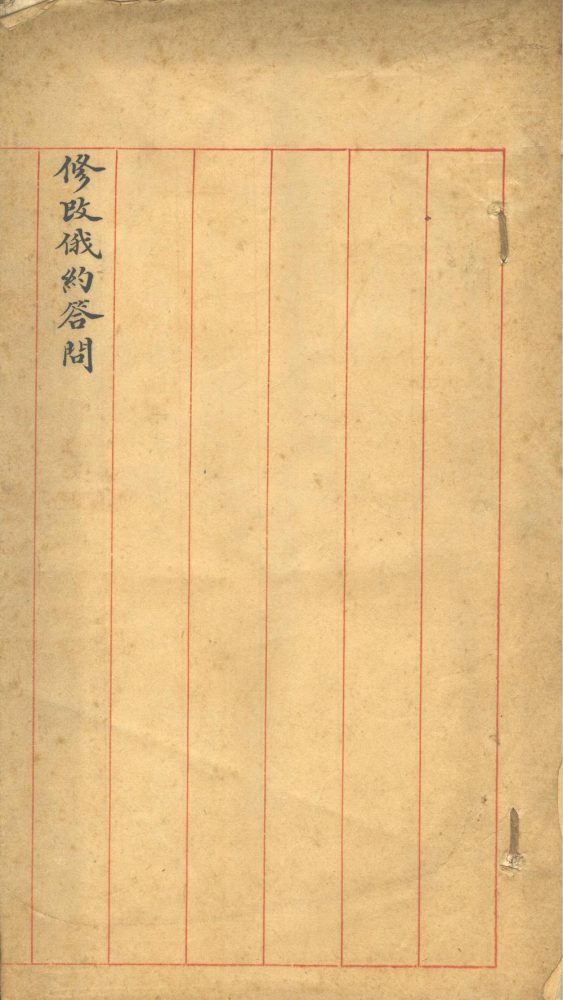 修改俄約答問